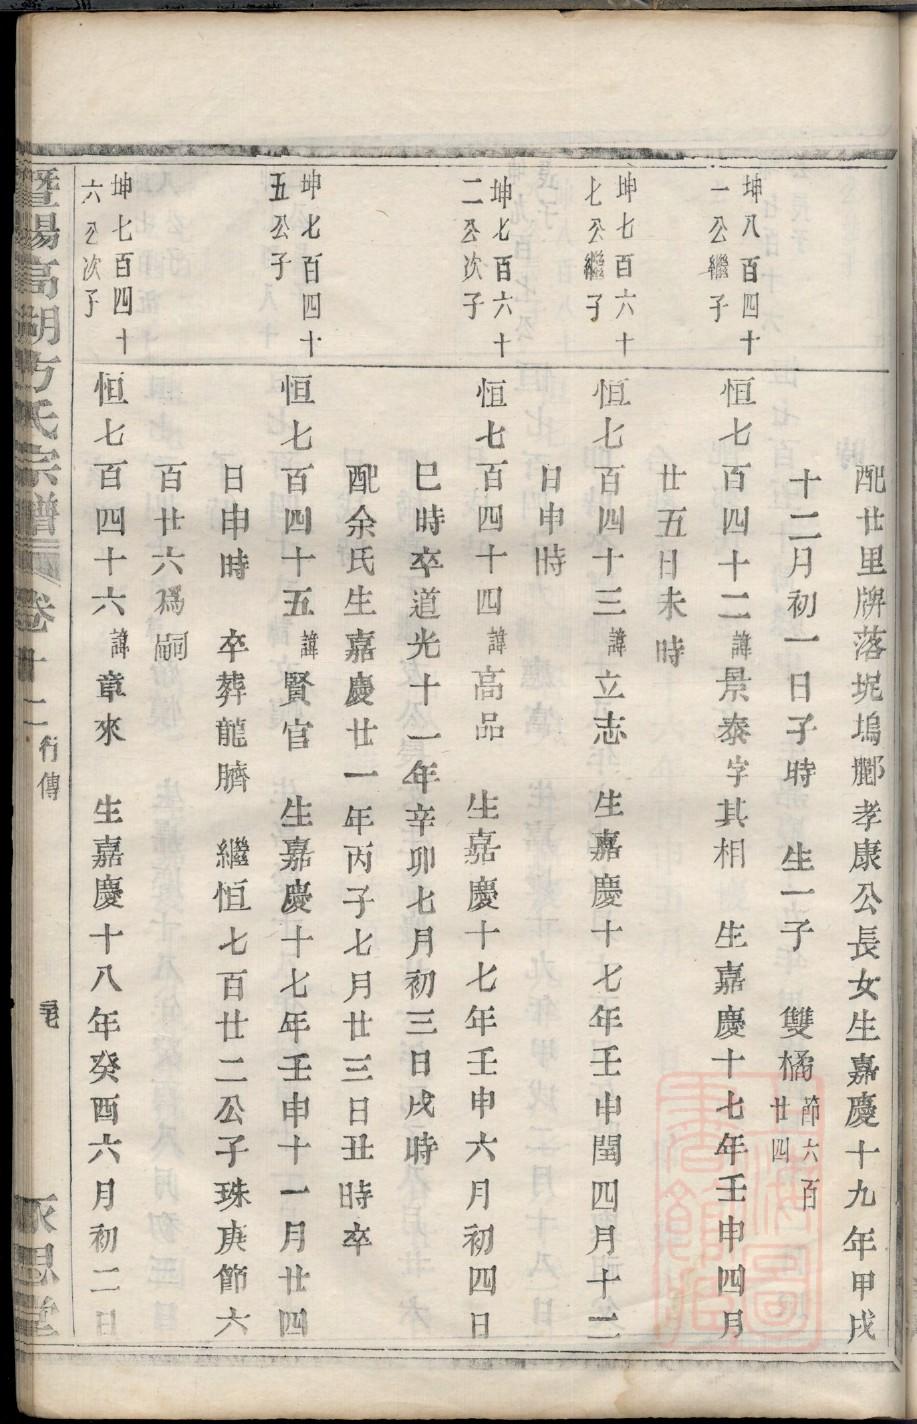 配廿里牌落坭塢酈孝康公長女生嘉慶十九年甲戌
十二月初一日子時 生一子 雙橘節六百廿四
坤八百四十一公繼子
恒七百四十二諱景泰字其相 生嘉慶十七年壬申四月
廿五日未時
坤七百六十七公繼子
恒七百四十三諱立志 生嘉慶十七年壬申閏四月十二
日申時
坤七百六十二公次子
恒七百四十四諱高品 生嘉慶十七年壬申六月初四日
巳時卒道光十一年辛卯七月初三日戌時
配余氏生嘉慶廿一年丙子七月廿三日丑時卒
坤七百四十五公子
恒七百四十五諱賢官 生嘉慶十七年壬申十一月廿四
日申時 卒葬龍臍 繼恒七百廿二公子珠庚節六
百廿六爲嗣
坤七百四十六公次子
恒七百四十六諱章來 生嘉慶十八年癸酉六月初二日
暨陽高湖方氏宗譜 卷十二 行傳 永思堂